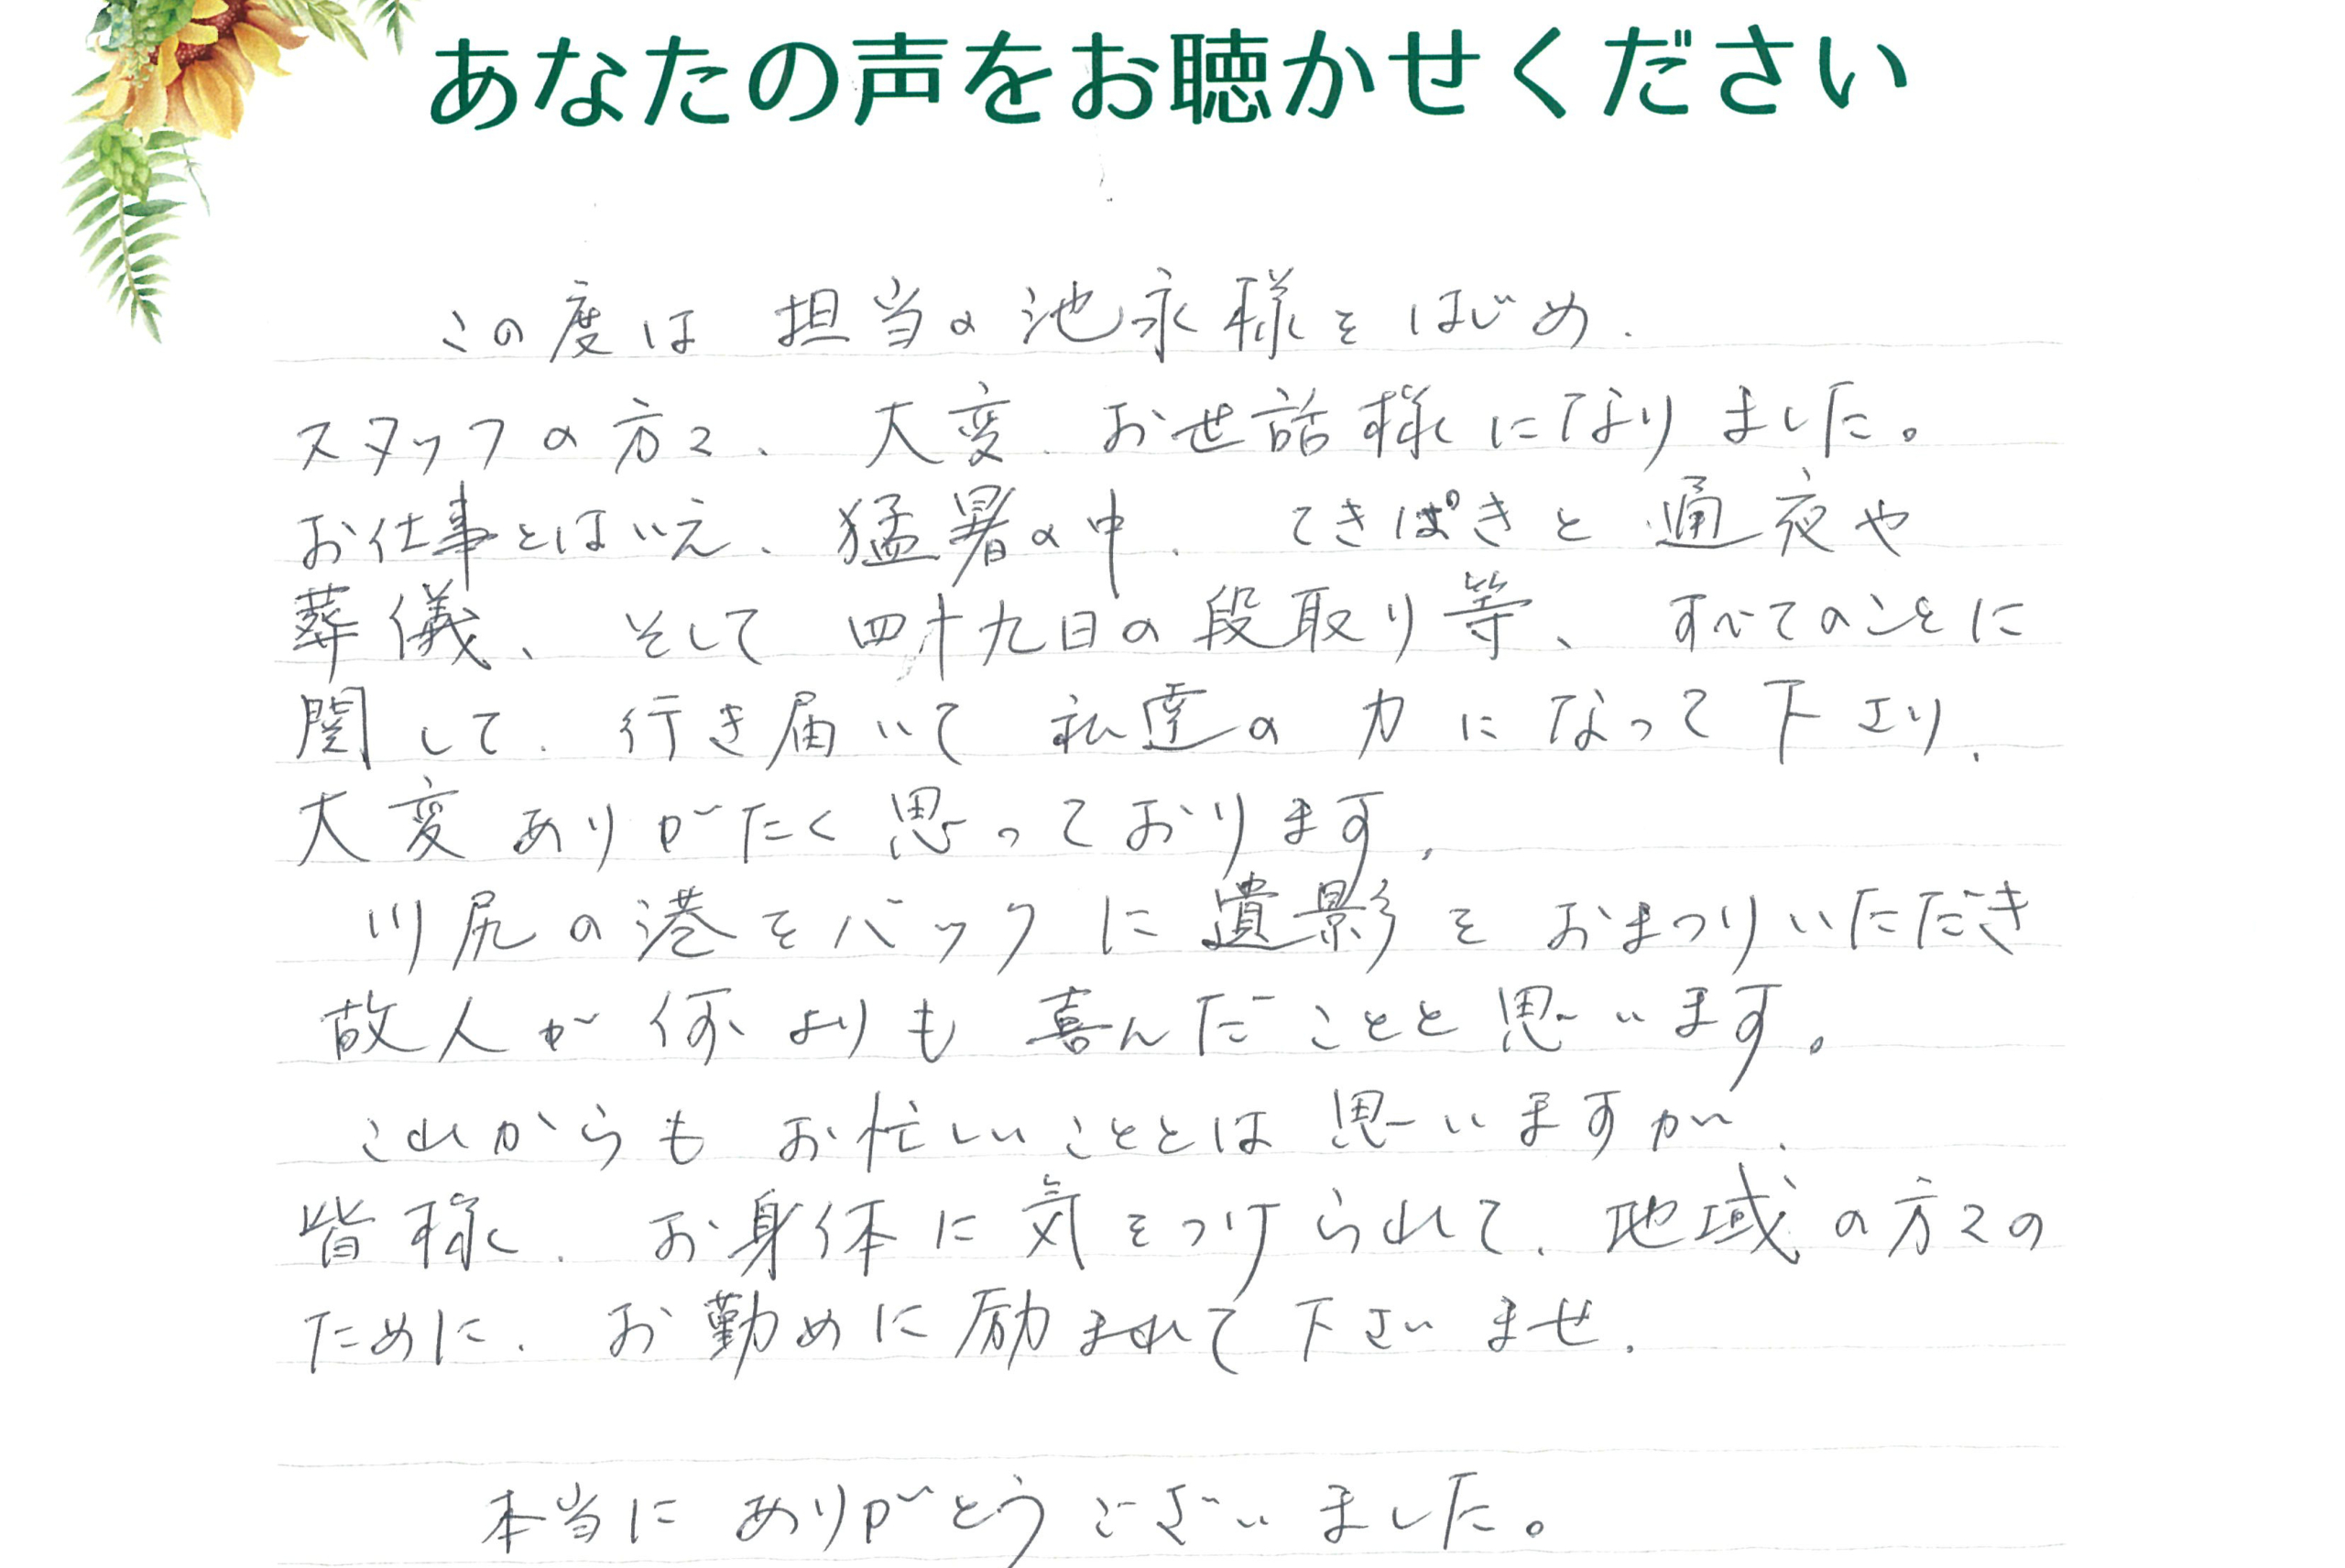 あなたの声をお聴かせください
この度は担当の池永様をはじめ、
スタッフの方々、大変、お世話様になりました。
お仕事とはいえ、猛暑の中、てきぱきと通夜や
葬儀、そして四十九日の段取り等、すべてのことに
関して、行き届いて私達の力になって下さり、
大変ありがたく思っております。
川尻の港をバックに遺影をおまつりいただき
故人が何よりも喜んだことと思います。
これからもお忙しいこととは思いますが、
皆様、お身体に気をつけられて、地域の方々の
ために、お勤めに励まれて下さいませ。
本当にありがとうございました。